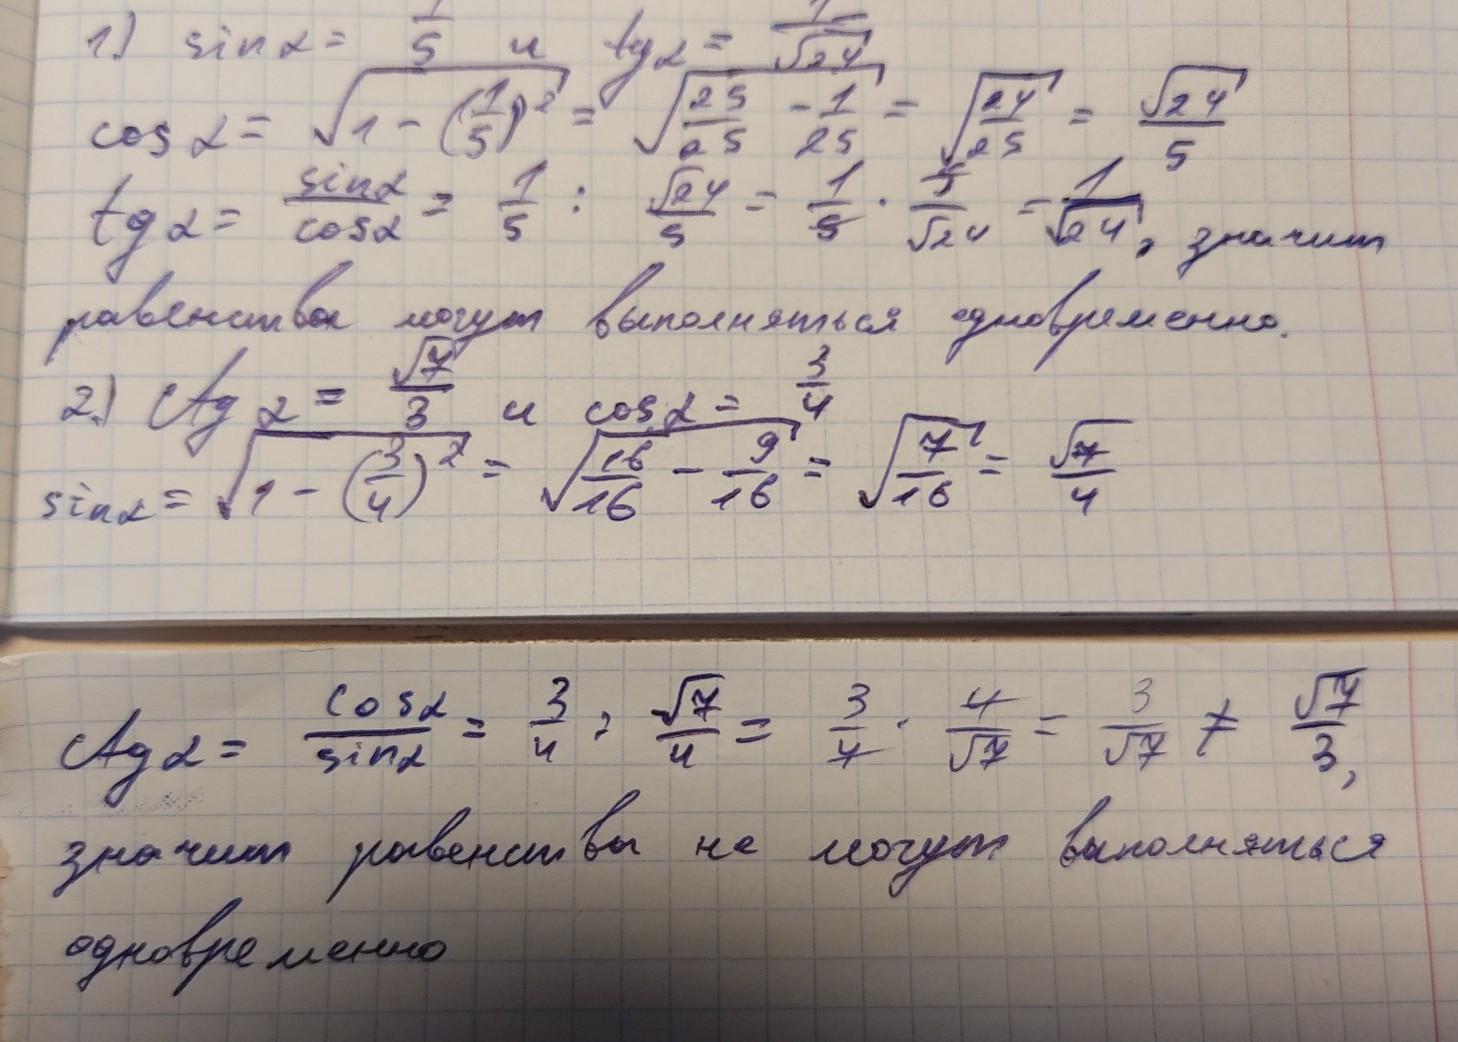 1) sin α = 1/5 и tg α = 1/√24
cos α = √(1 - (1/5)²) = √(25/25 - 1/25) = √(24/25) = √24/5
tg α = sin α/cos α = 1/5 : √24/5 = 1/5 · 5/√24 = 1/√24, значит
равенства могут выполняться одновременно.
2) ctg α = √7/3 и cos α = 3/4
sin α = √(1 - (3/4)²) = √(16/16 - 9/16) = √(7/16) = √7/4
ctg α = cos α/sin α = 3/4 : √7/4 = 3/4 · 4/√7 = 3/√7 ≠ √7/3,
значит равенства не могут выполняться
одновременно